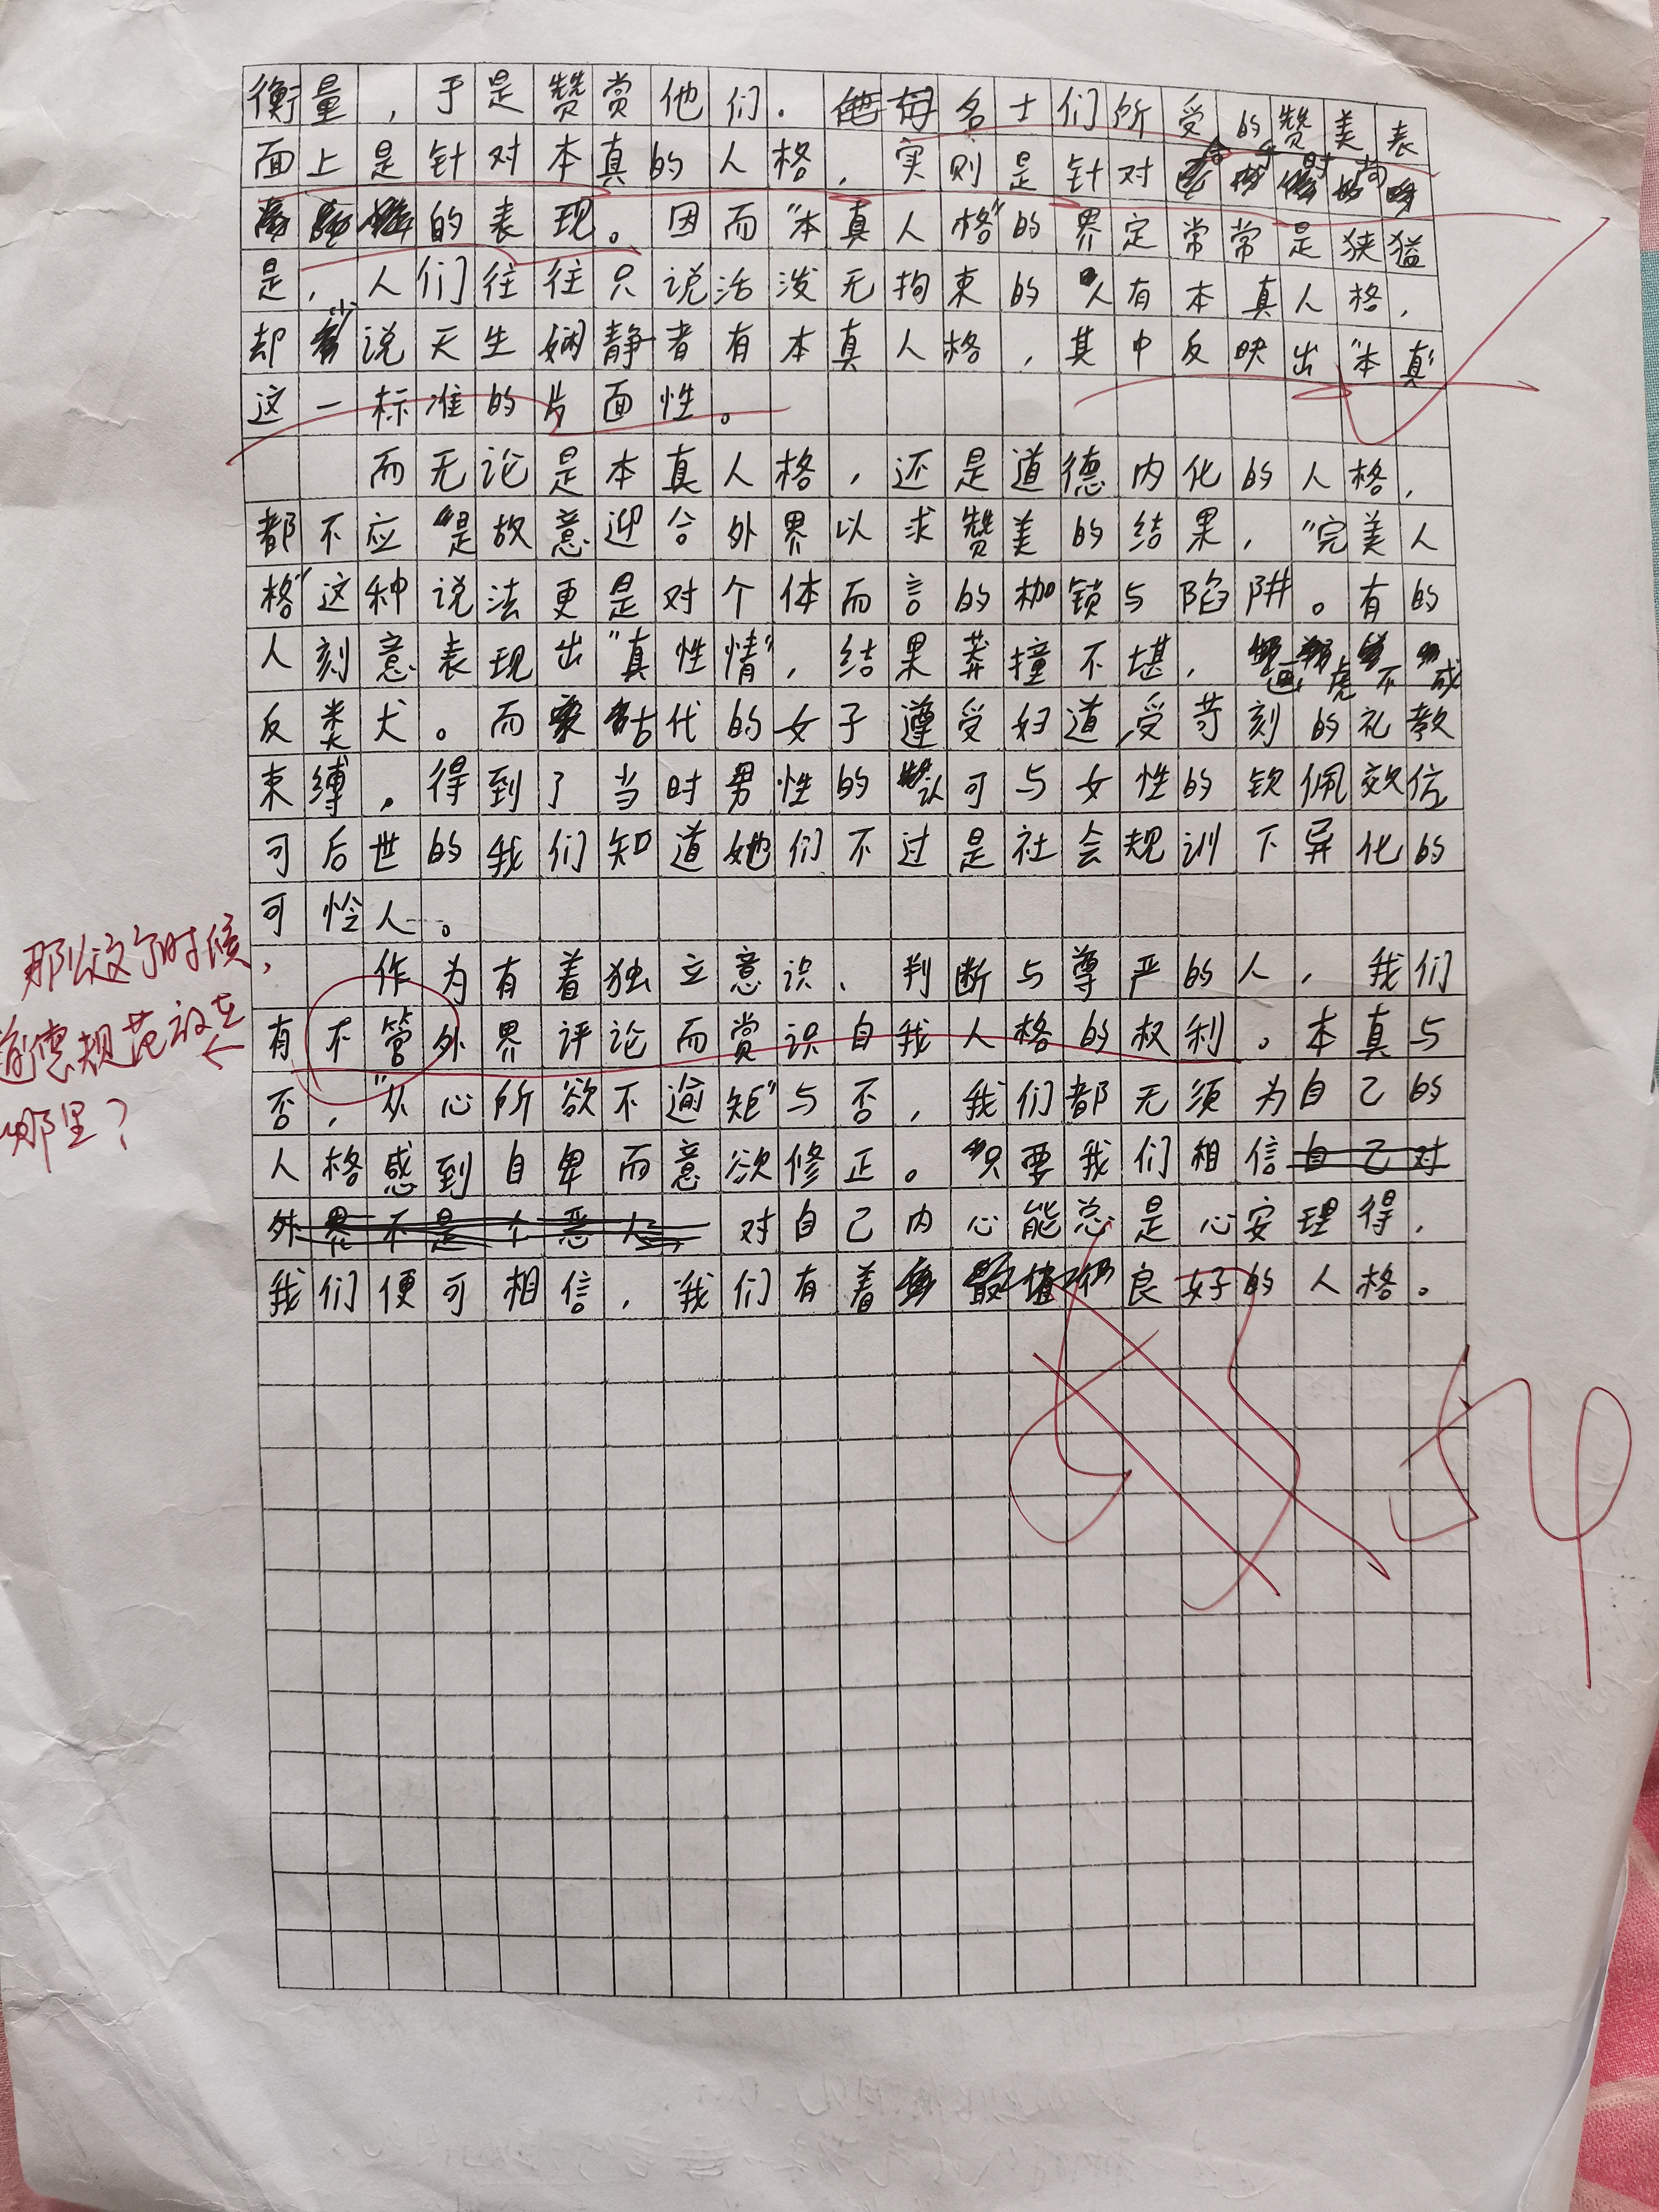 衡量，于是赞赏他们．名士们所受的赞美表
面上是针对本真的人格，实则是针对合乎时尚
的表现。因而"本真人格"的界定常常是狭猛
是，人们往往只说活泼无拘束的人有本真人格，
却少说天生娴静者有本真人格，其中反映出"本真"
这一标准的片面性。
而无论是本真人格，还是道德内化的人格，
都不应是故意迎合外界以求赞美的结果，"完美人
格"这种说法更是对个体而言的枷锁与陷阱。有的
人刻意表现出"真性情"，结果莽撞不堪，画虎不成
反类犬。而古代的女子遵受妇道，受苛刻的礼教
束缚，得到了当时男性的认可与女性的钦佩效仿
可后世的我们知道她们不过是社会规训下异化的
可怜人。
作为有着独立意识、判断与尊严的人，我们
有不管外界评论而赏识自我人格的权利。本真与
否，"从心所欲不逾矩"与否，我们都无须为自己的
人格感到自卑而意欲修正。只要我们相信自己对
外界不是个恶人，对自己内心能总是心安理得，
我们便可相信，我们有着良好的人格。
那么这个时候，
道德规范放在
哪里？